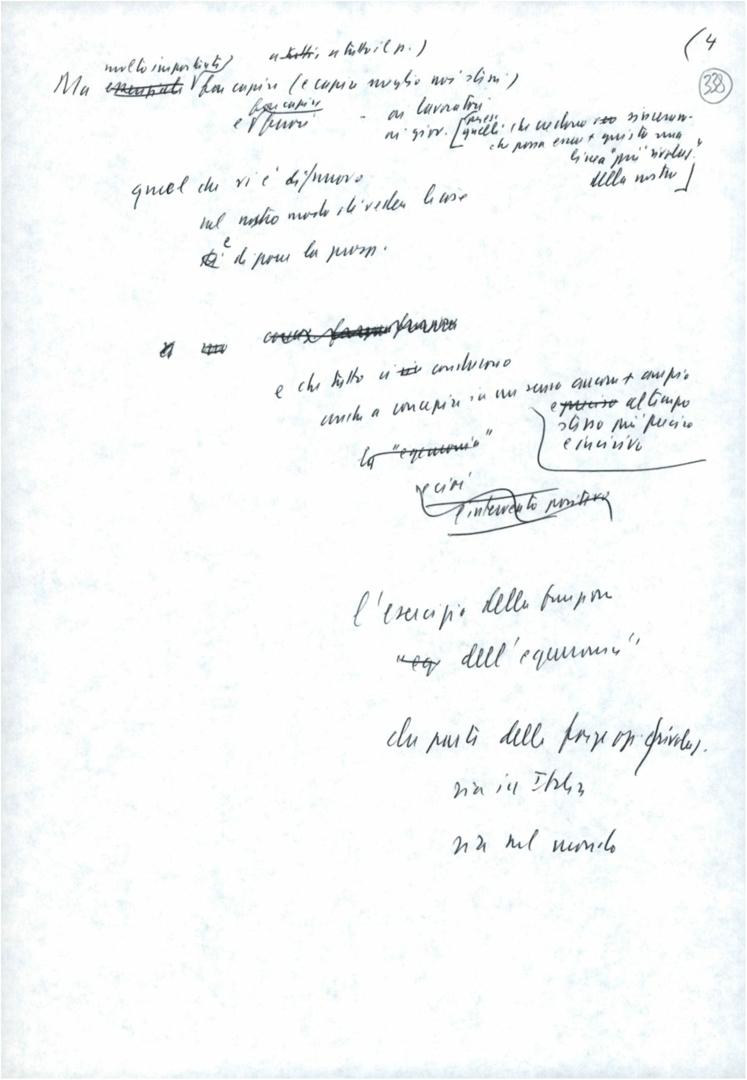 (4
338
molto importante a tutti, a tutto il p.)
Ma essenziale far capire (e capire meglio noi stessi)
far capire
e fuori - ai lavoratori
ai giov. [quelli che credono sinceram.
che possa esserci + giusta una
linea "più rivoluz."
della nostra]
quel che vi è di nuovo
nel nostro modo di vedere le cose
e di porre la prosp.
e che tutto ci conduce
anche a concepire in un senso ancora + ampio
e preciso al tempo
stesso più preciso
e incisivo
la "egemonia"
e così
l'intervento positivo
l'esercizio della funzione
"eg dell'egemonia"
che parte delle forze op. rivoluz.
sia in Italia
sia nel mondo